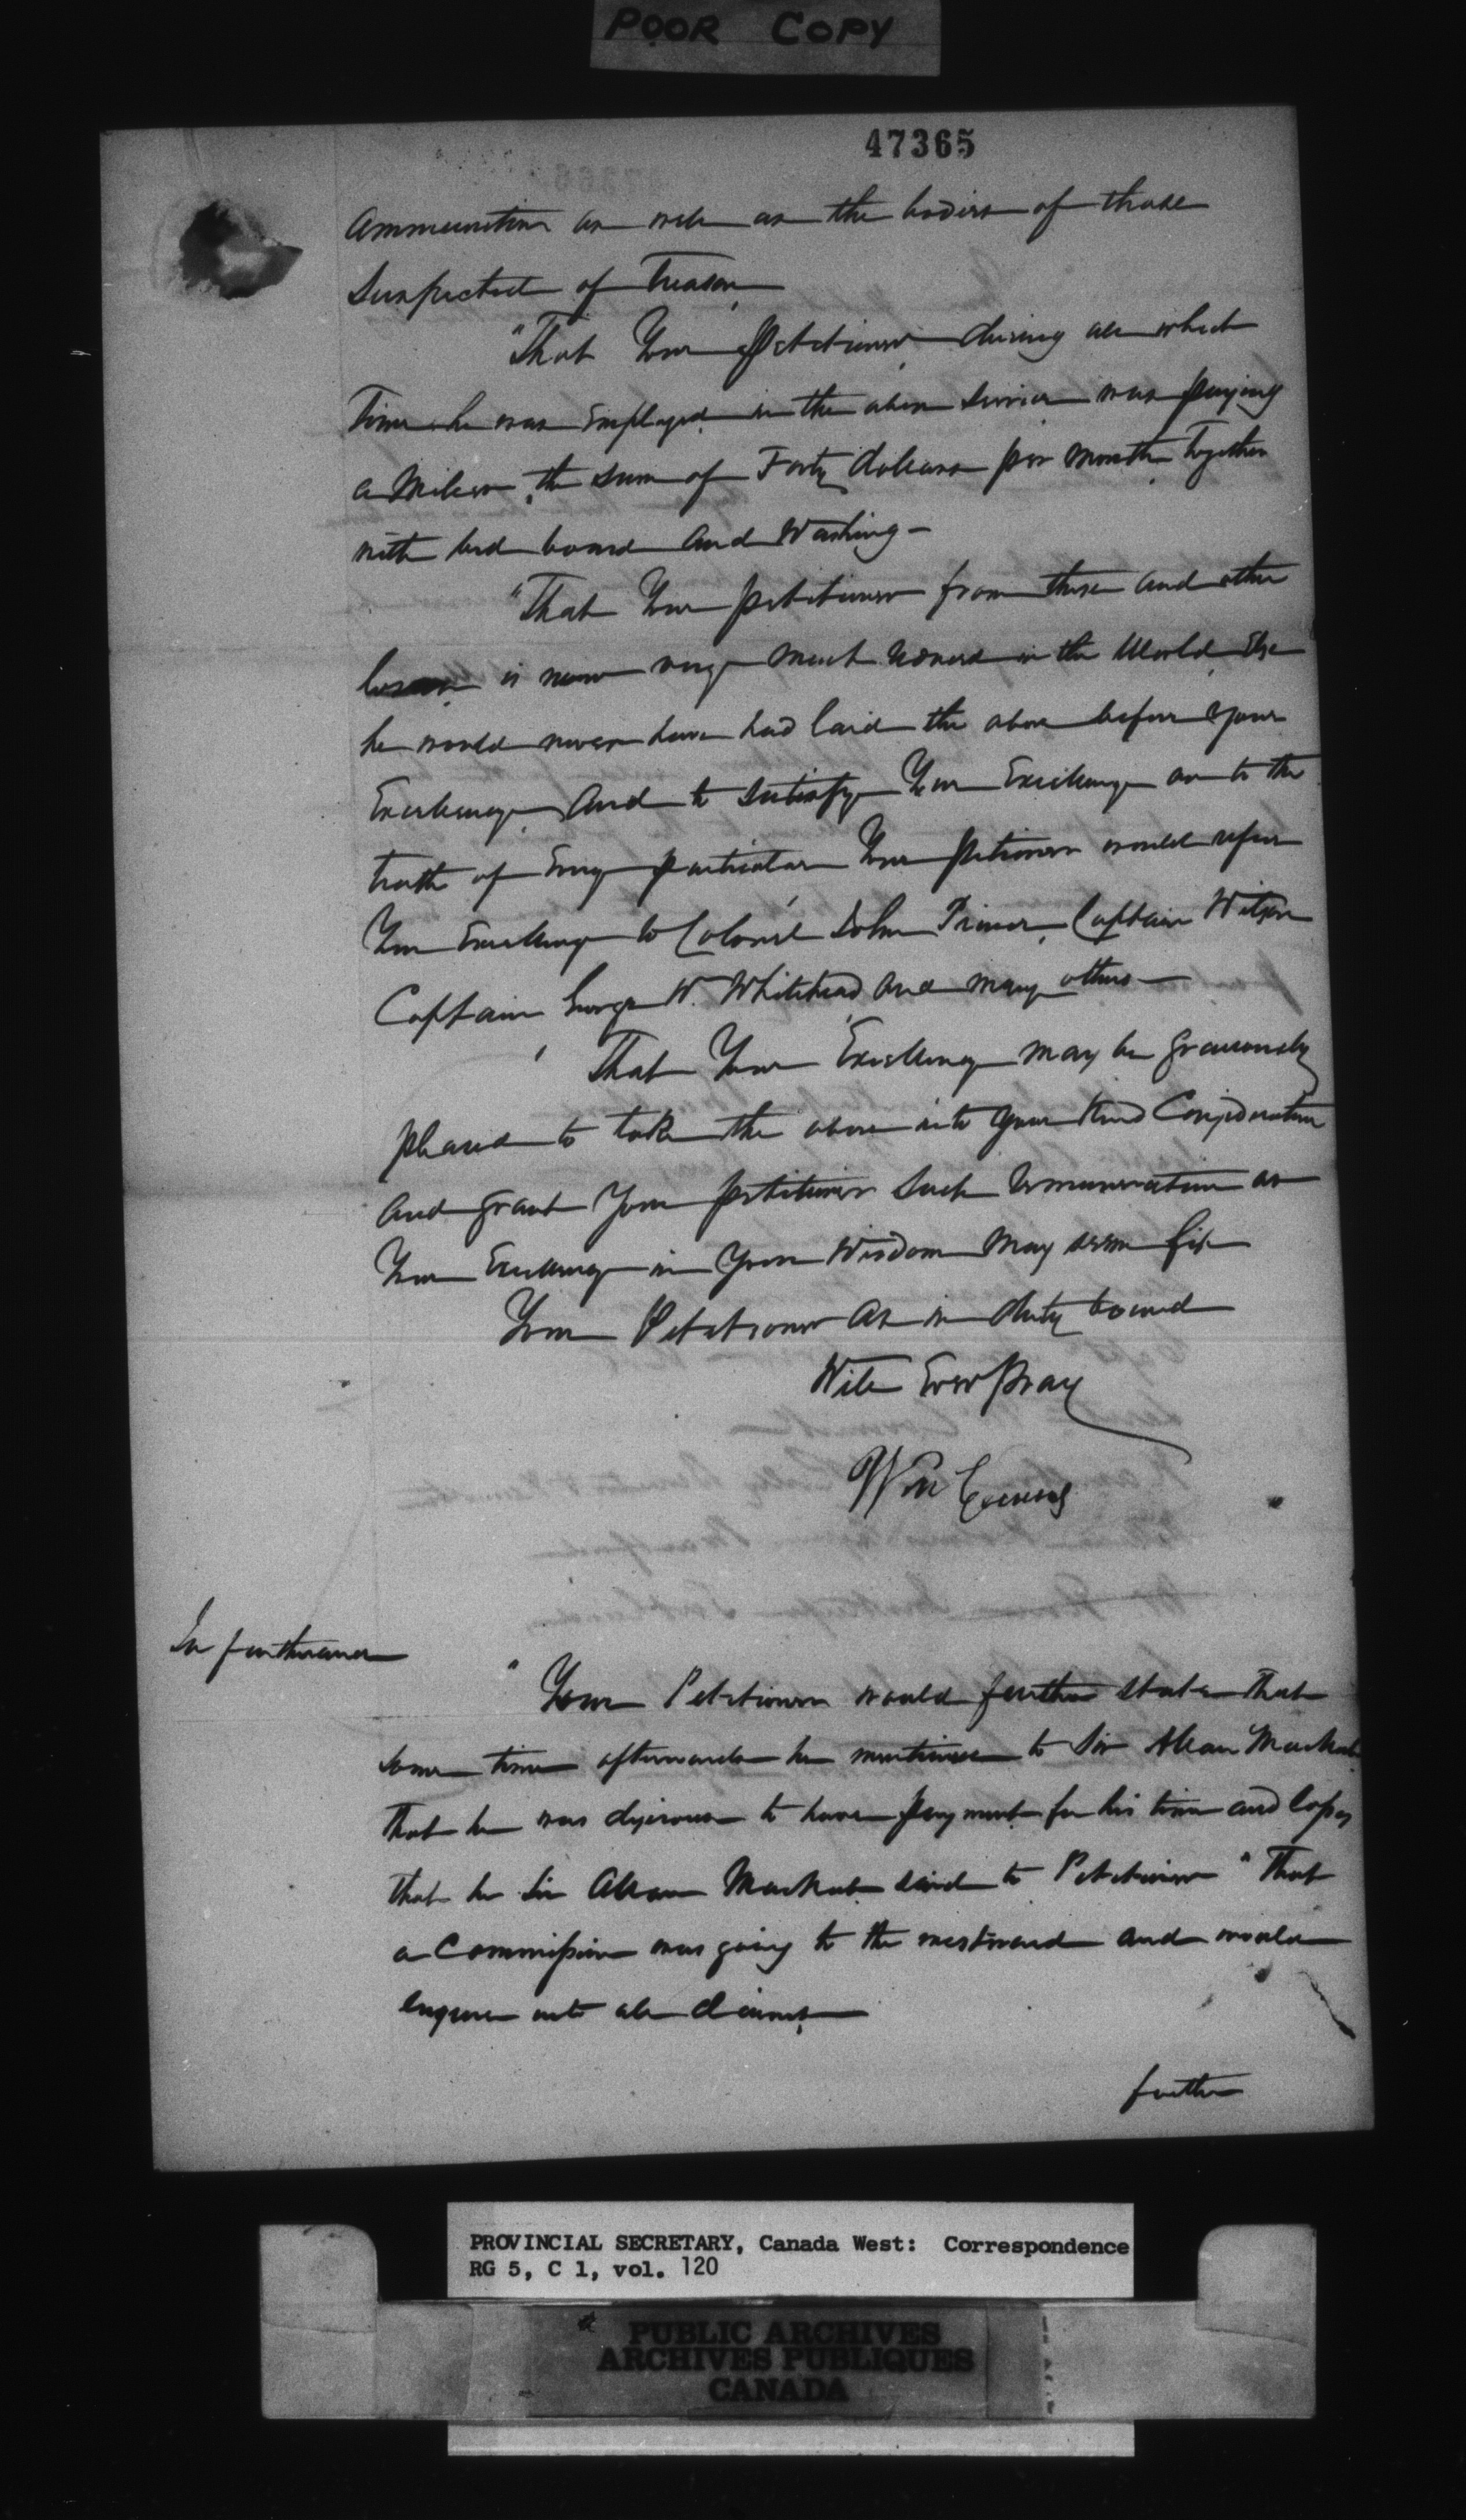 POOR COPY
47365
Ammunition as well as the bodies of those
Suspected of Treason
"That Your Petitioner during all which
Time he was Employed in the above Service was paying
a Miller, the sum of Forty dollars per month, together
with bed board and Washing –
"That Your petitioner from these and other
losses is now very much reduced in the World Else
he would never have had laid the above before Your
Excellency. And to Satisfy Your Excellency as to the
truth of Every particular Your petitioner would refer
Your Excellency to Colonel John Captain Wilson
Captain George W. Whitehead and many others –
That Your Excellency may be graciously
pleased to take the above into your Kind Consideration
and grant Your petitioner Such remuneration as
Your Excellency in Your Wisdom may seem fit
Your Petitioner as in duty bound
Will Ever Pray
Wm
In furtherance
" Your Petitioner would further state That
some time afterwards he mentioned to Sir Allan MacNab
That he was desirous to have payment for his time and losses
that he Sir Allan MacNab said to Petitioner "That
a Commission was going to the westward and would
enquire into all claims
further
PROVINCIAL SECRETARY, Canada West: Correspondence
RG 5, C 1, vol. 120
PUBLIC ARCHIVES
ARCHIVES PUBLIQUES
CANADA